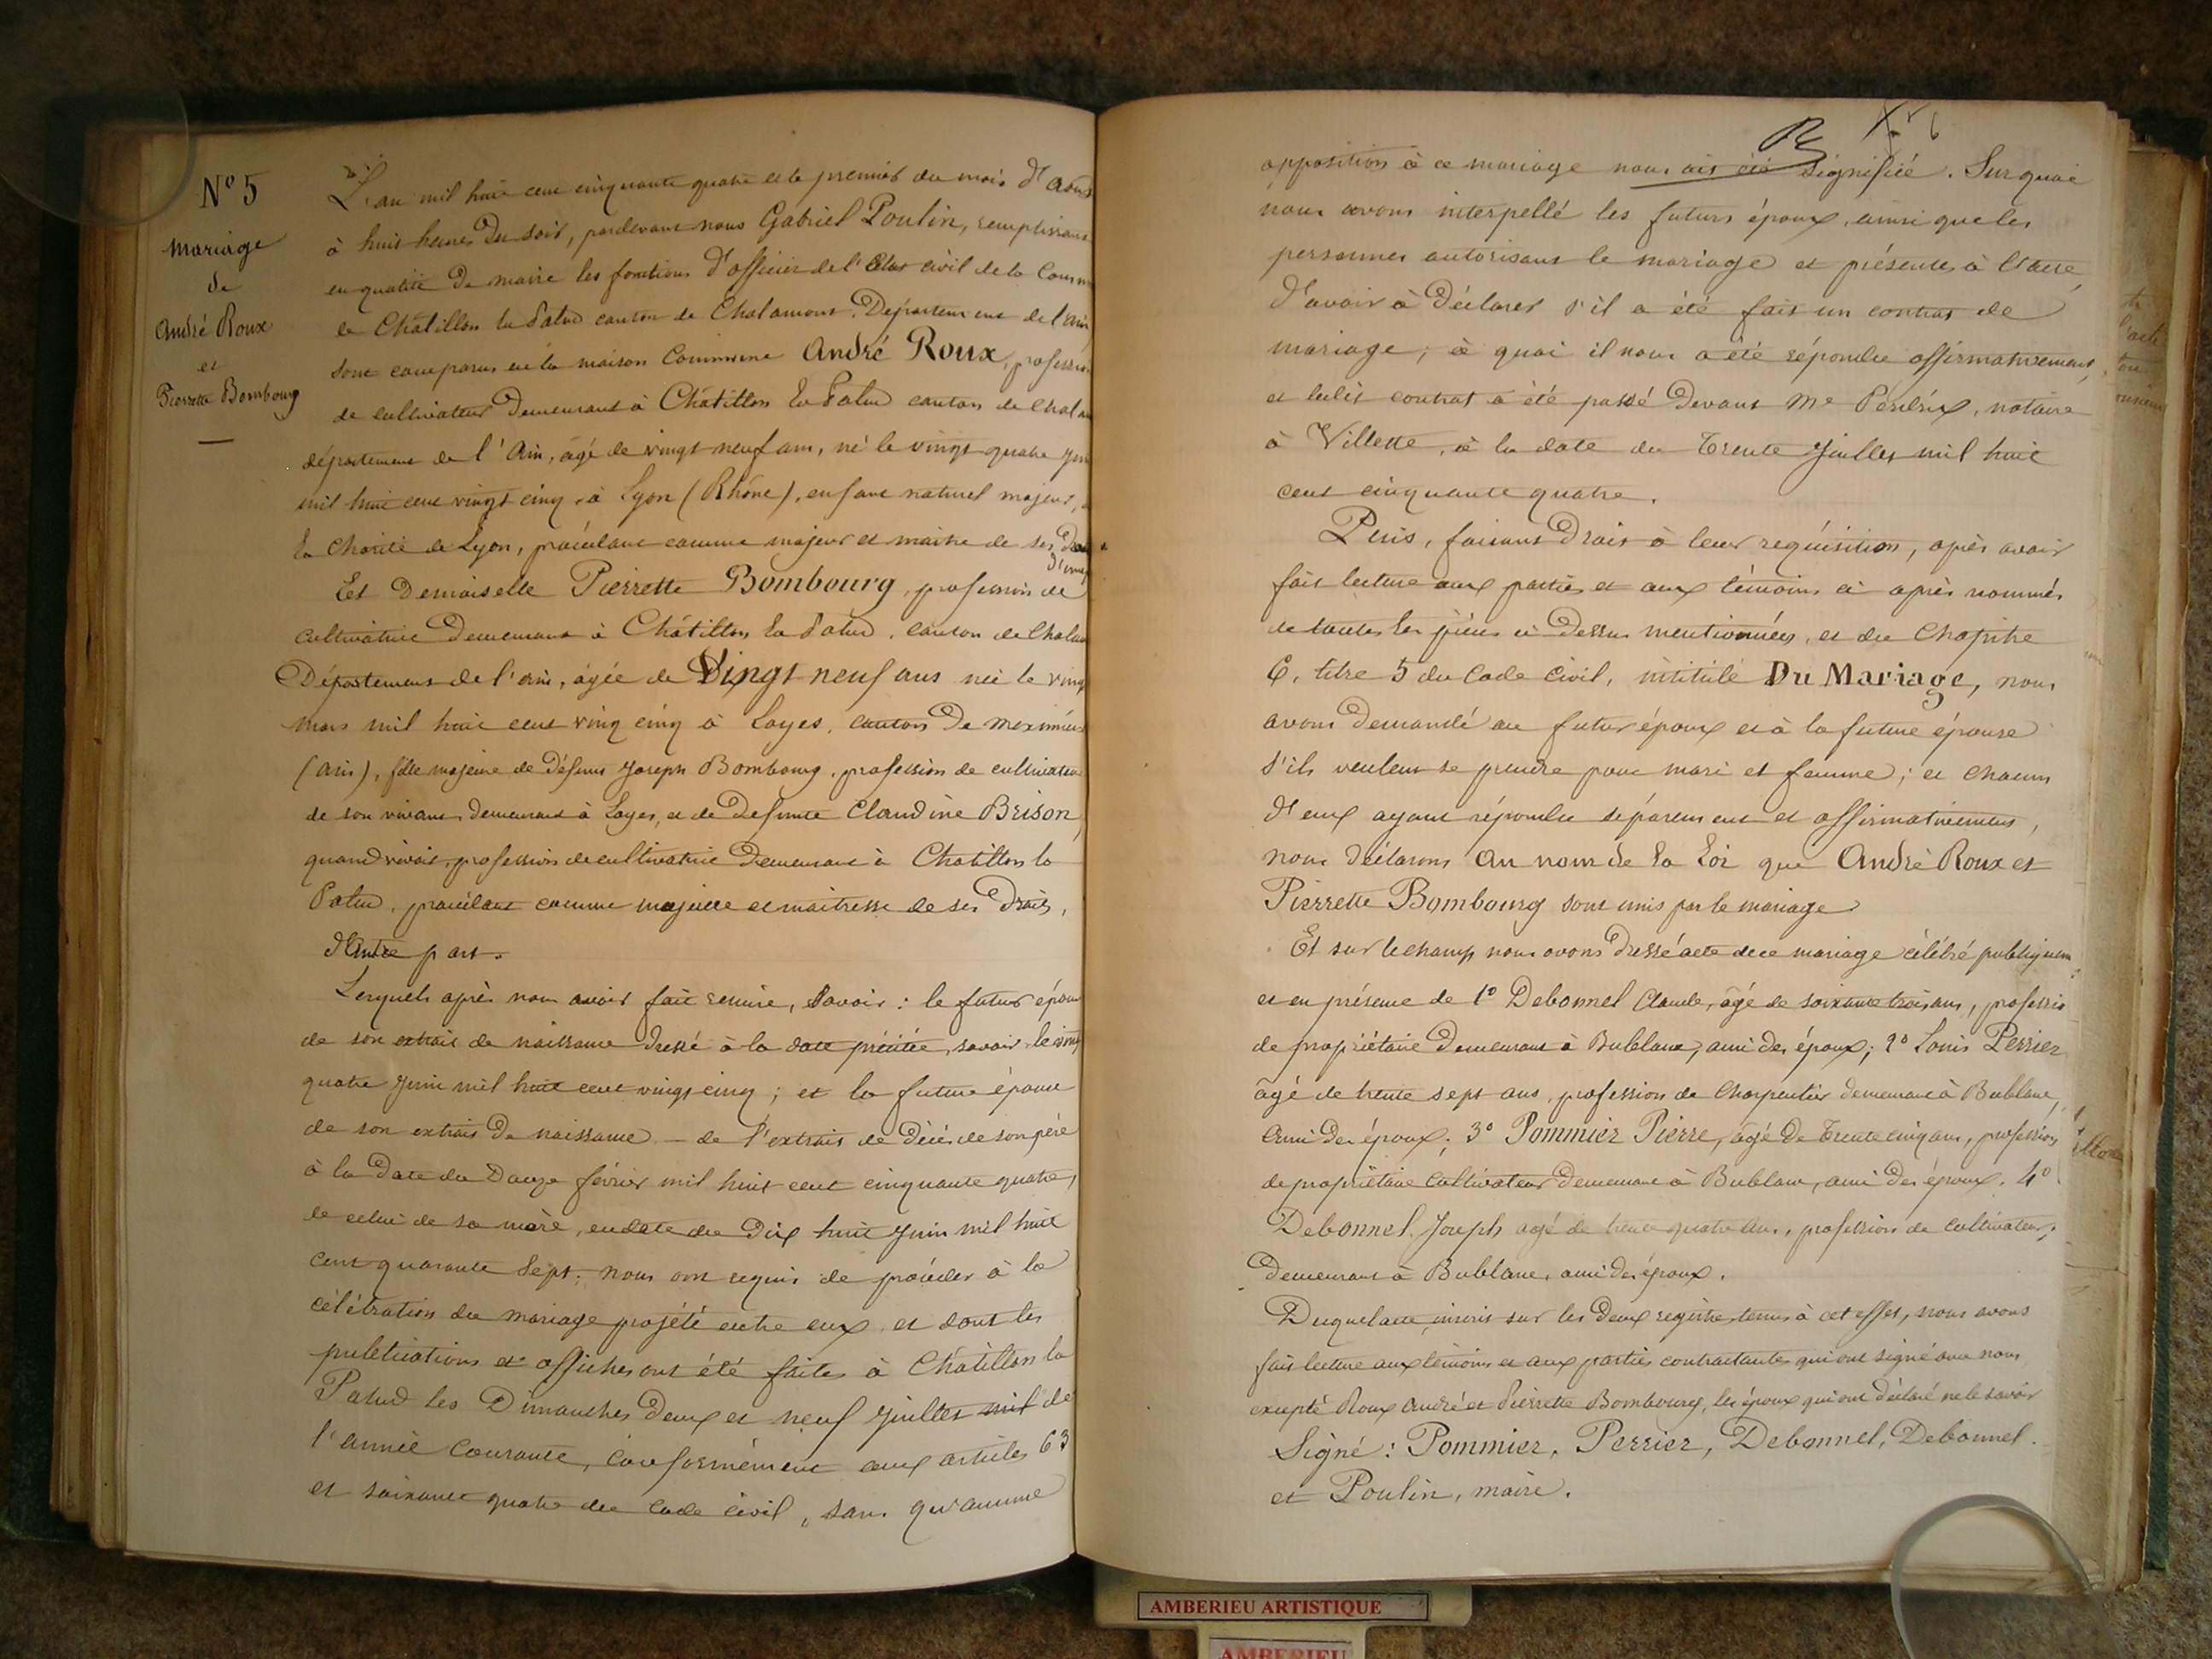 N° 5
Mariage
de
André Roux
et
Pierrette Bombourg
L'an mil huit cent cinquante quatre et le premier du mois d'Août
à huit heures du soir, pardevant nous Gabriel Poulin, remplissant
en qualité de maire les fonctions d'officier de l'Etat civil de la Comm
de Châtillon la Palud canton de Chalamont, Département de l'Ain
sont comparus en la maison Commune André Roux, profession
de cultivateur demeurant à Châtillon la Palud canton de Chalam
département de l'Ain, âgé de vingt neuf ans, né le vingt quatre Juin
mil huit cent vingt cinq, à Lyon (Rhône), enfant naturel majeur, de
la Charité de Lyon, procédant comme majeur et maître de ses droits
d'une p
Et Demoiselle Pierrette Bombourg, profession de
cultivatrice demeurant à Châtillon la Palud, canton de Chalam
Département de l'ain, âgée de Vingt neuf ans née le vingt
mars mil huit cent vingt cinq à Loyes, canton de Meximieux
(ain), fille majeure de défunt Joseph Bombourg, profession de cultivateur
de son vivant, demeurant à Loyes, et de défunte Claudine Brison,
quand vivait, profession de cultivatrice demeurant à Chatillon la
Palud, procédant comme majeure et maitresse de ses Droits,
d'Autre part.
Lesquels après nous avoir fait remise, Savoir : le futur époux
de son extrait de naissance dressé à la date précitée, savoir le vingt
quatre Juin mil huit cent vingt cinq ; et la future épouse
de son extrait de naissance — de l'extrait de décès de son père
à la date du Douze février mil huit cent cinquante quatre,
de celui de sa mère, en date du Dix huit Juin mil huit
cent quarante Sept. nous ont requis de procéder à la
célébration du mariage projété entre eux et dont les
publications et affiches ont été faites à Châtillon la
Palud les Dimanches deux et neuf Juillet mil de
l'année courante, conformément aux articles 63
et soixante quatre du Code civil, sans qu'aucune
opposition à ce mariage nous ait été signifiée. Sur quoi
nous avons interpellé les futurs époux, ainsi que les
personnes autorisant le mariage et présentes à l'acte
d'avoir à déclarer s'il a été fait un contrat de
mariage ; à quoi il nous a été répondu affirmativement,
et ledit contrat a été passé devant Me Perdrix, notaire
à Villette, à la date du trente Juillet mil huit
cent cinquante quatre.
Puis, faisant droit à leur requisition, après avoir
fait lecture aux parties et aux témoins ci après nommés
de toutes les pièces ci dessus mentionnées, et du Chapitre
6, titre 5 du Code Civil, intitulé Du Mariage, nous
avons demandé au futur époux et à la future épouse
s'ils veulent se prendre pour mari et femme ; et chacun
d'eux ayant répondu séparement et affirmativement,
nous déclarons au nom de la Loi que André Roux et
Pierrette Bombourg sont unis par le mariage
Et sur le champ nous avons dressé acte de ce mariage célébré publiquem
et en présence de 1° Debonnel Claude, âgé de soixante trois ans, professio
de propriétaire demeurant à Bublane, ami des époux ; 2° Louis Perrier
âgé de trente sept ans, profession de Charpentier demeurant à Bublane,
ami des époux ; 3° Pommier Pierre, âgé de trente cinq ans, profession
de propriétaire Cultivateur demeurant à Bublane, ami des époux. 4°
Debonnel Joseph agé de trente quatre ans, profession de cultivateur,
demeurant à Bublane, ami des époux.
Duquel acte, inscrit sur les deux registres tenus à cet effet, nous avons
fait lecture aux témoins et aux parties contractantes qui ont signé avec nous
excepté Roux André et Pierrette Bombourg, les époux qui ont déclaré ne le savoir
Signé : Pommier, Perrier, Debonnel, Debonnel.
et Poulin, maire.
AMBERIEU ARTISTIQUE
AMBERIEU